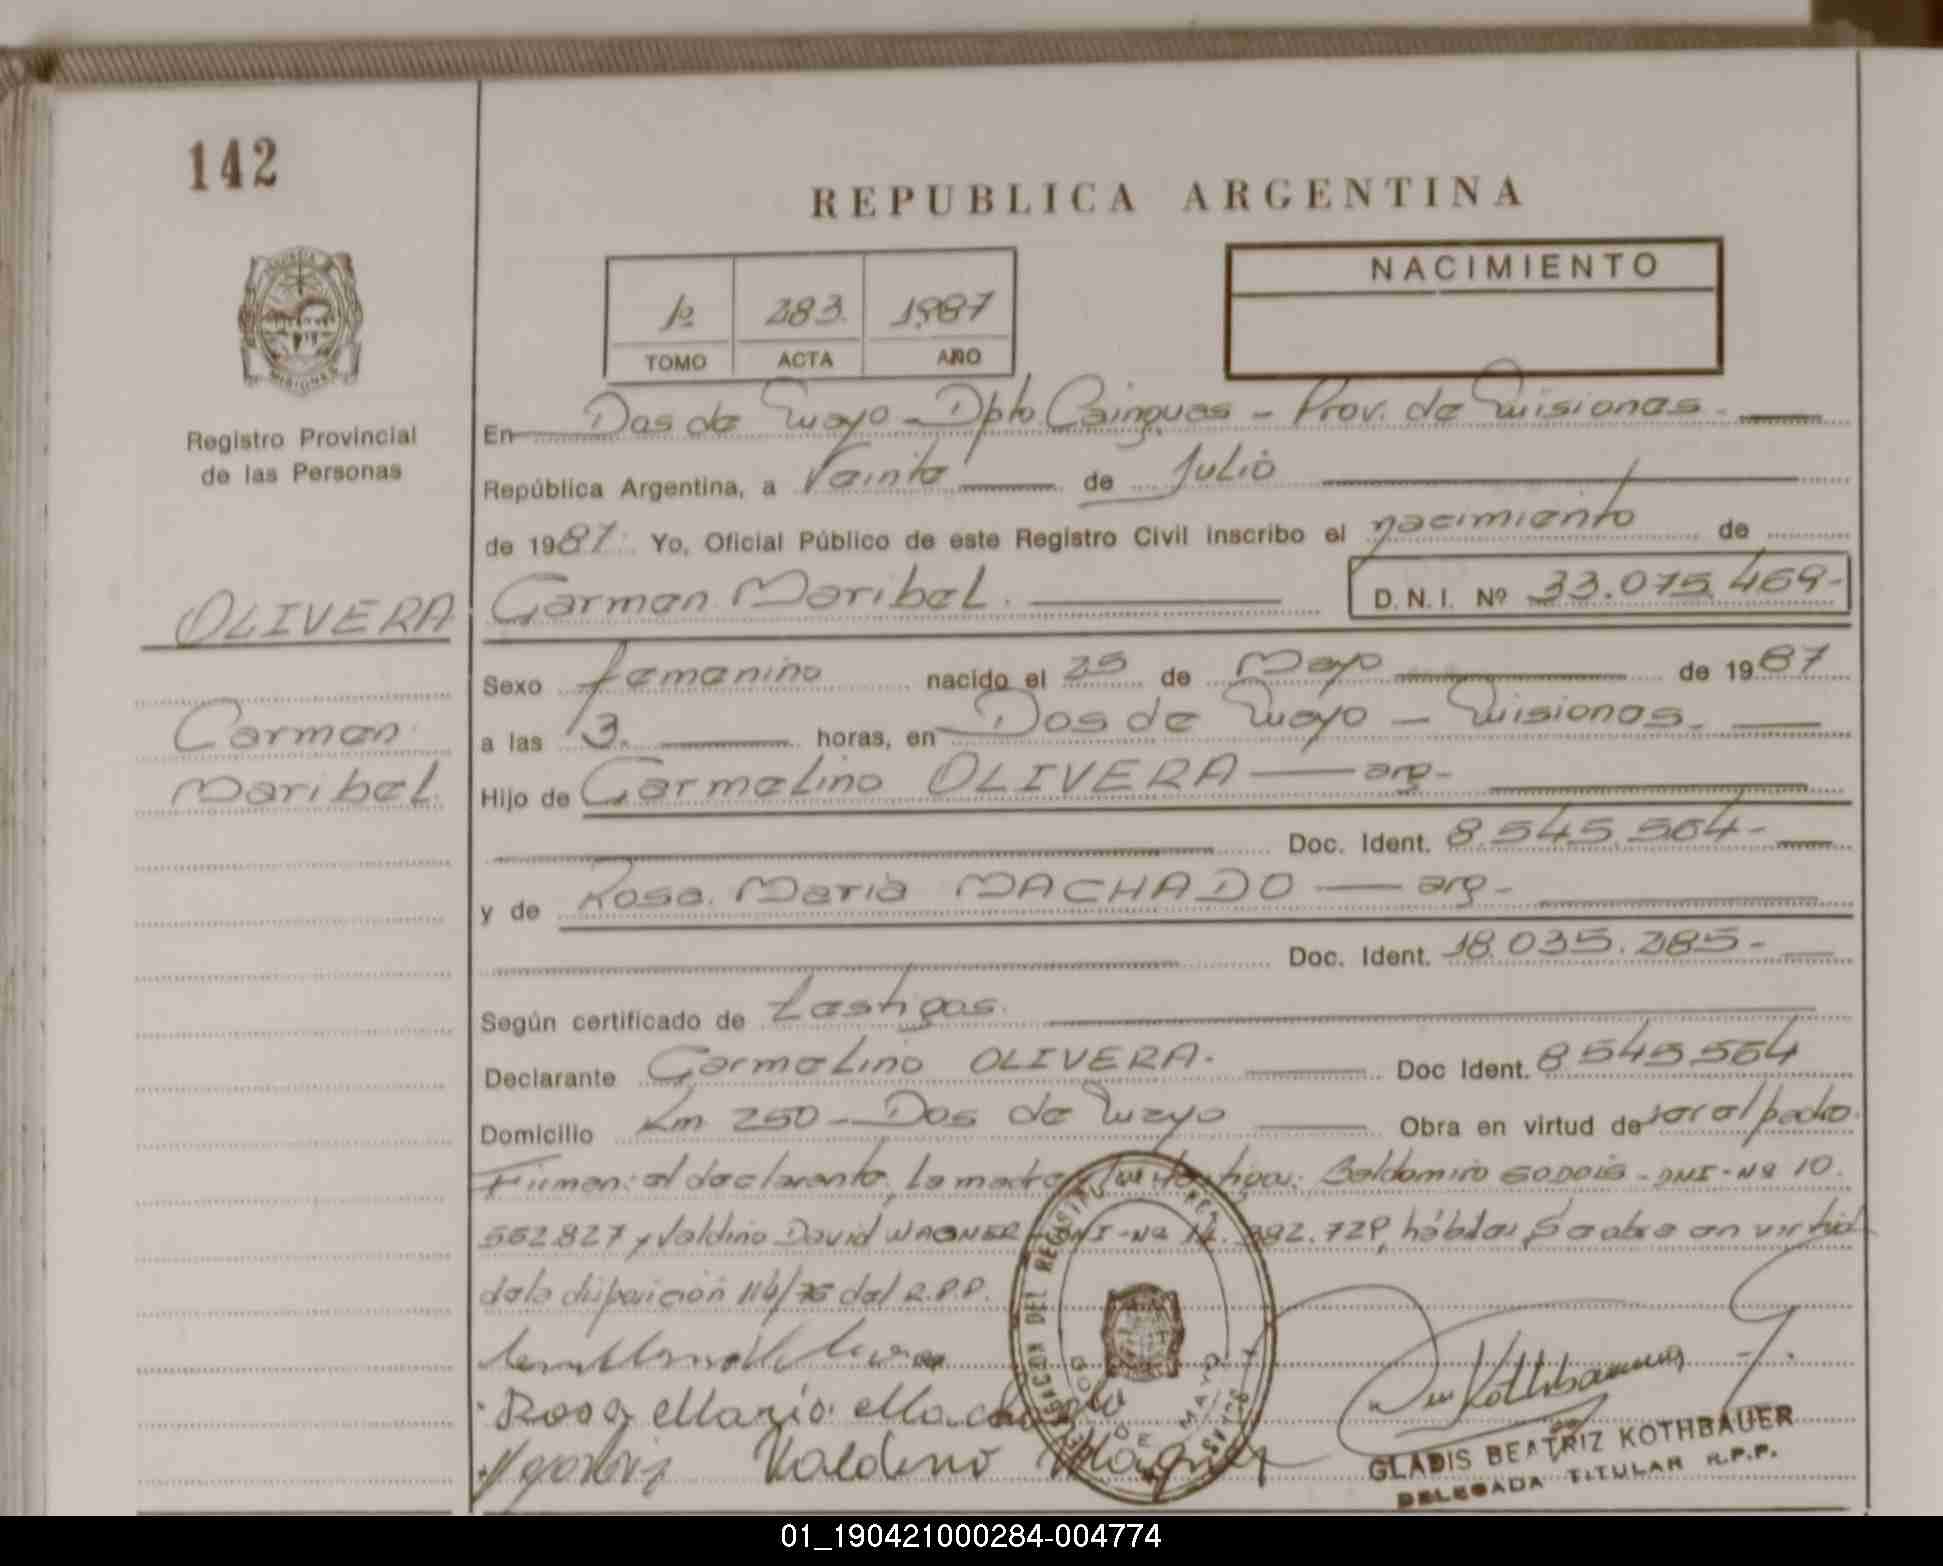 142
REPUBLICA ARGENTINA
NACIMIENTO
1º 283. 1987
TOMO ACTA AÑO
MISIONES
Registro Provincial
de las Personas
En Dos de Mayo - Dpto Cainguas - Prov. de Misiones -
República Argentina, a Veinte de Julio
de 1987. Yo, Oficial Público de este Registro Civil inscribo el nacimiento de
OLIVERA
Carmen Maribel. D.N.I. Nº 33.075.469-
Sexo femenino nacido el 25 de Mayo de 1987
Carmen
Maribel.
a las 3. horas, en Dos de Mayo - Misiones.
Hijo de Carmelino OLIVERA arg-
Doc. Ident. 8.545.564-
y de Rosa Maria MACHADO arg-
Doc. Ident. 18.035.285-
Según certificado de testigos.
Declarante Carmelino OLIVERA. Doc Ident. 8.545.564
Domicilio Km 250 - Dos de Mayo Obra en virtud de ser el padre.
Firman: el declarante, la madre y testigos: Baldomiro GODOIS - DNI - Nº 10.
552.827 y Valdino David WAGNER - DNI - Nº 14. 729, hábiles, Se obra en virtud
de la disposición 116/76 del R.P.P.
Rosa Maria Machado
Valdino Wagner
DOS DE MAYO
MISIONES
GLADIS BEATRIZ KOTHBAUER
DELEGADA TITULAR R.P.P.
01_190421000284-004774